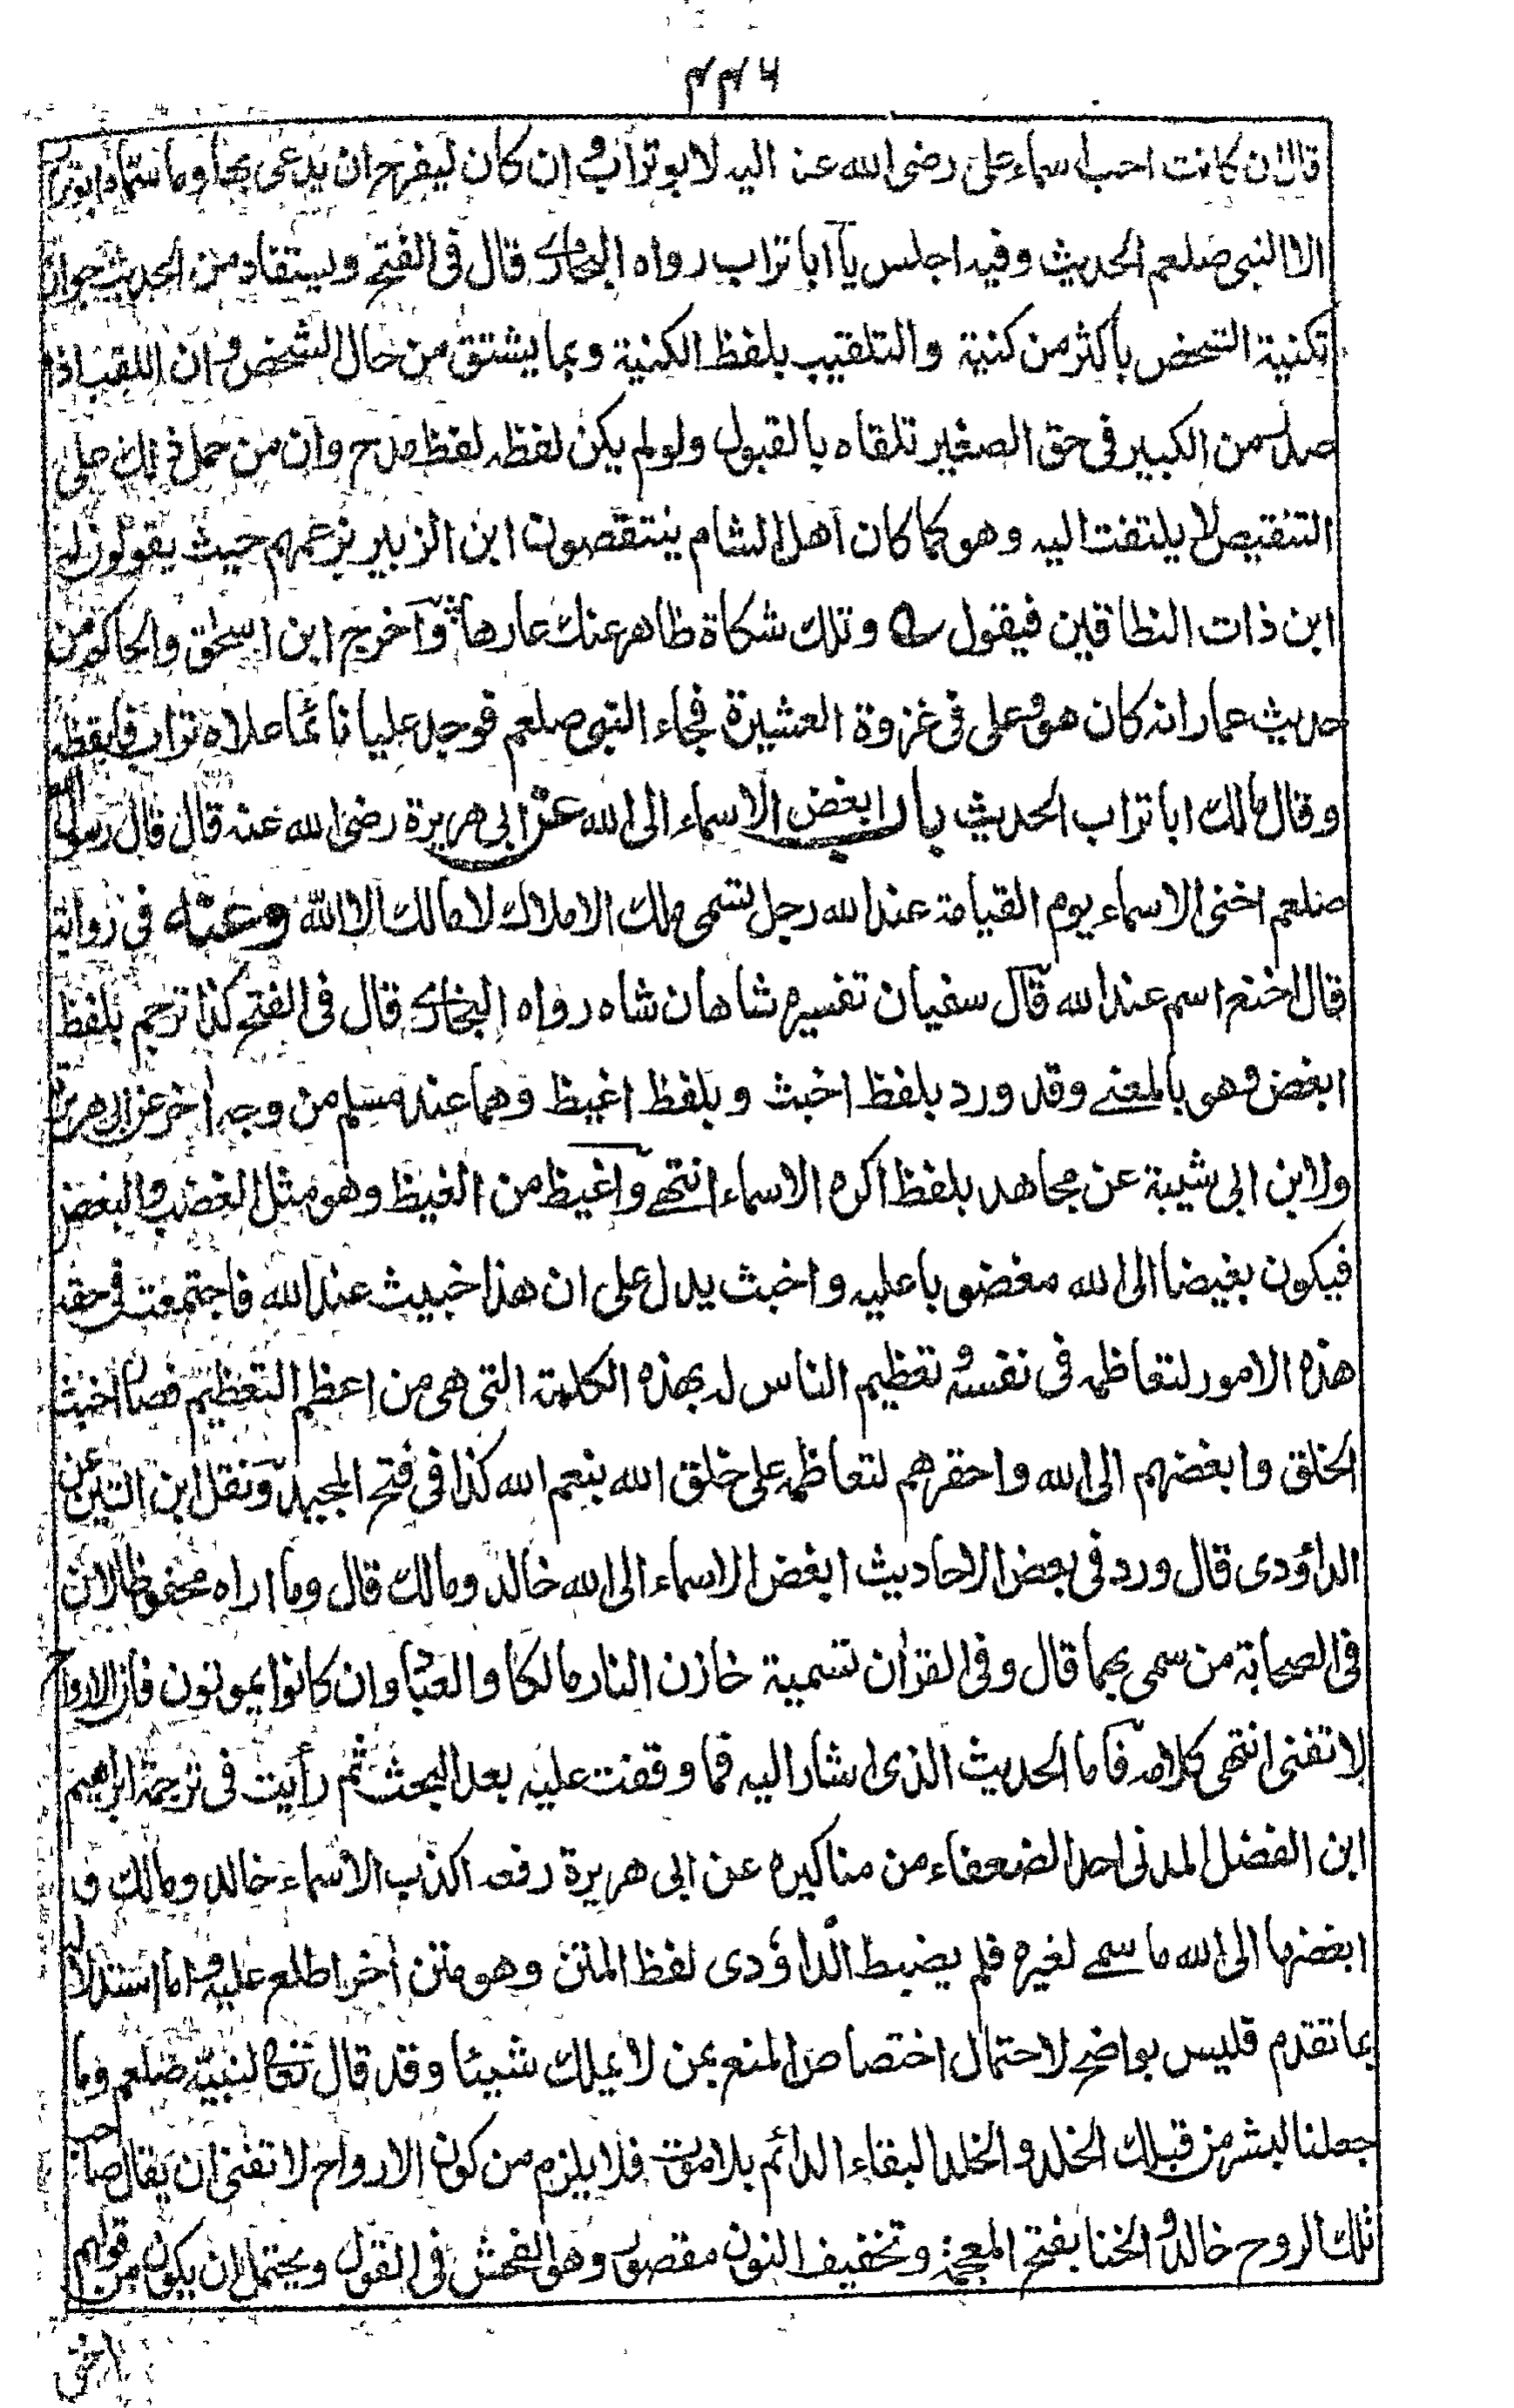 ۲۲۶
قال ان كانت احب اسماء علی رضی الله عنه الیه لابو تراب و ان كان لیفرح ان یدعی بها وما سماه ابو تراب
الا النبی صلعم الحدیث وفیه اجلس یا ابا تراب رواه البخاری قال فی الفتح ویستفاد من الحدیث جواز
تكنیة الشخص باكثر من كنیة والتلقیب بلفظ الكنیة وبما یشتق من حال الشخص و ان اللقب اذا
صدر من الكبیر فی حق الصغیر تلقاه بالقبول ولو لم یكن لفظه لفظ مدح وان من حمل ذلك علی
التنقیص لا یلتفت الیه وهو كما كان اهل الشام ینتقصون ابن الزبیر بزعمهم حیث یقولون له
ابن ذات النطاقین فیقول ؎ وتلك شكاة ظاهر عنك عارها ؛ وآخرج ابن اسحٰق والحاكم من
حدیث عمار انه كان هو وعلی فی غزوة العشیرة فجاء النبی صلعم فوجد علیا نائما علاه تراب فایقظه
وقال مالك ابا تراب الحدیث باب ابغض الاسماء الی الله عن ابی هریرة رضی الله عنه قال قال رسول الله
صلعم اخنی الاسماء یوم القیامة عند الله رجل تسمی ملك الاملاك لا مالك الا الله وعنه فی روایة
قال اخنع اسم عند الله قال سفیان تفسیره شاهان شاه رواه البخاری قال فی الفتح كذا ترجم بلفظ
ابغض وهو بالمعنے وقد ورد بلفظ اخبث وبلفظ اغیظ وهما عند مسلم من وجه اٰخر عن ابی هریرة
ولابن ابی شیبة عن مجاهد بلفظ اكره الاسماء انتهے واغیظ من الغیظ وهو مثل الغضب والبغض
فیكون بغیضا الی الله مغضوبا علیه واخبث یدل علی ان هذا خبیث عند الله فاجتمعت فی حقه
هذه الامور لتعاظمه فی نفسه و تعظیم الناس له بهذه الكلمة التی هی من اعظم التعظیم فصار اخبث
الخلق وابغضهم الی الله واحقرهم لتعاظمه علی خلق الله بنعم الله كذا فی فتح المجید ونقل ابن التین عن
الداؤدی قال ورد فی بعض الاحادیث ابغض الاسماء الی الله خالد ومالك قال وما اراه محفوظا لان
فی الصحابة من سمی بهما قال وفی القراٰن تسمیة خازن النار مالكا والعباد وان كانوا یموتون فان الارواح
لا تفنی انتهی كلامه فاما الحدیث الذی اشار الیه فما وقفت علیه بعد البحث ثم رأیت فی ترجمة ابراهیم
ابن الفضل المدنی احد الضعفاء من مناكیره عن ابی هریرة رفعه اكذب الاسماء خالد ومالك و
ابغضها الی الله ما سمے لغیره فلم یضبط الداؤدی لفظ المتن وهو متن اٰخر اطلع علیه و اما استدلاله
بما تقدم فلیس بواضح لاحتمال اختصاص المنع بمن لا یملك شیئا وقد قال تعالی لنبیه صلعم وما
جعلنا لبشر من قبلك الخلد و الخلد البقاء الدائم بلا موت فلا یلزم من كون الارواح لا تفنی ان یقال صاحب
تلك الروح خالد و الخنا بفتح المعجمة وتخفیف النون مقصور وهو الفحش فی القول ویحتمل ان یكون من قولهم